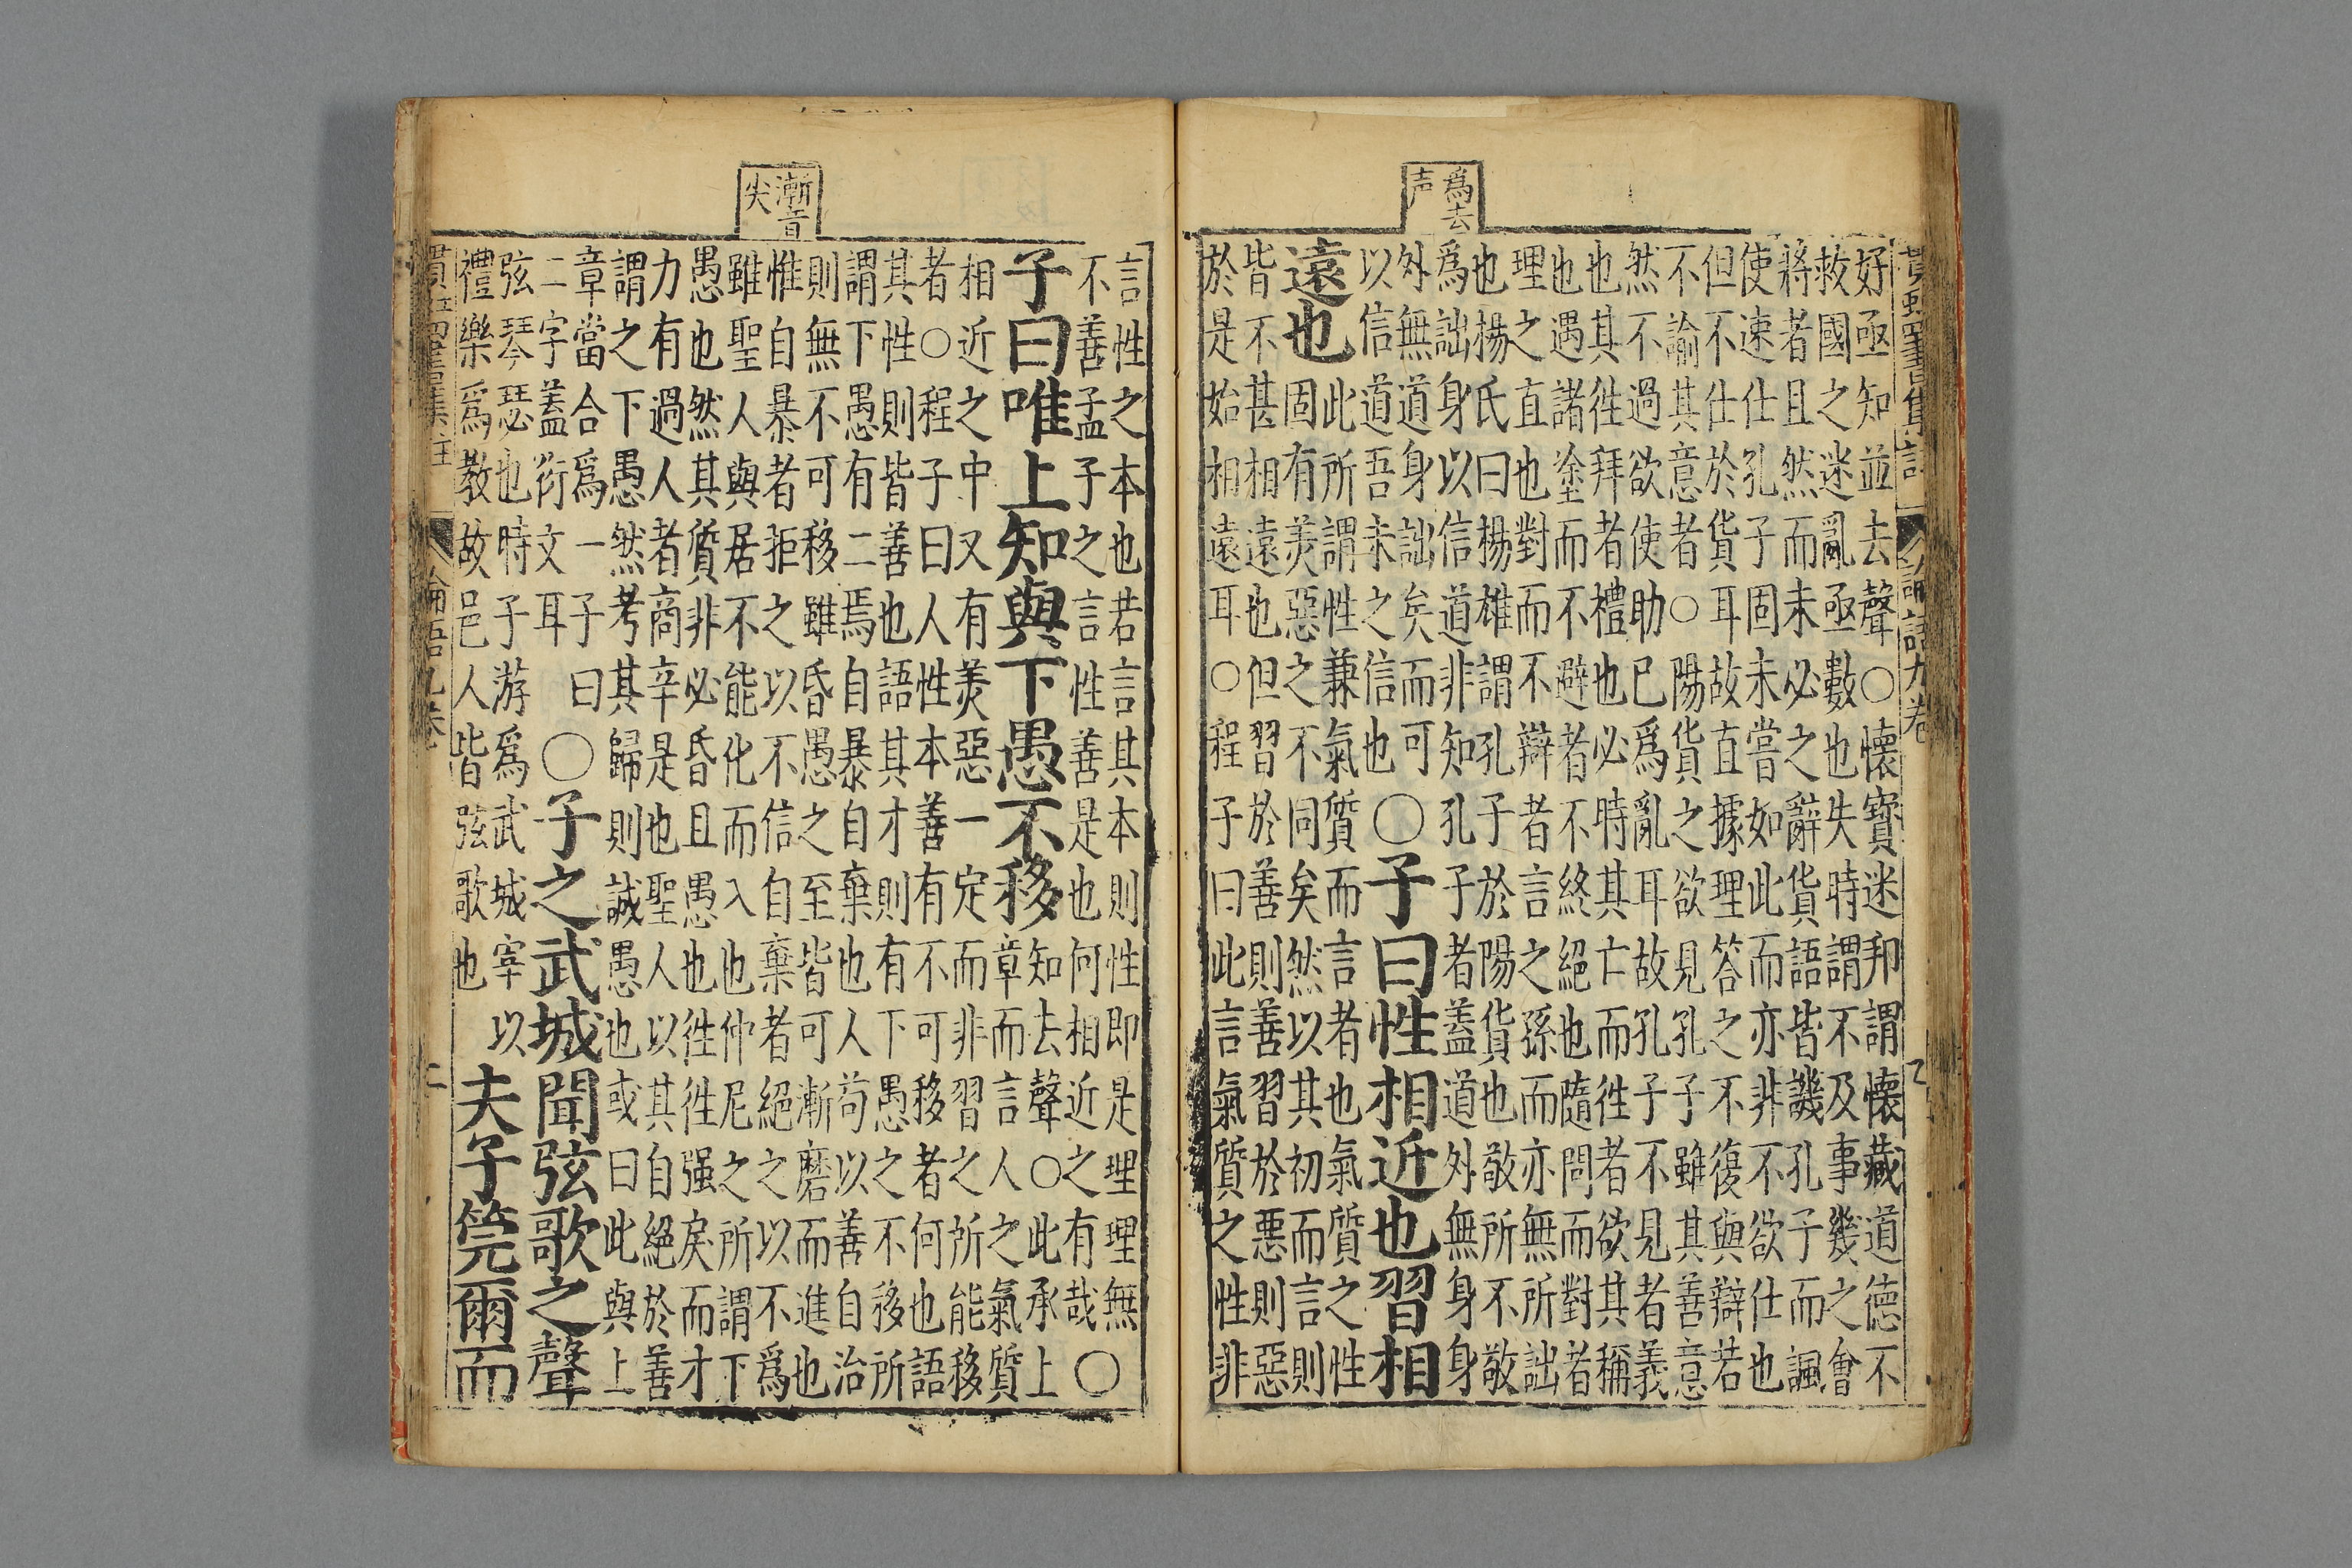 爲去
声
四書集註 論語九卷
好亟知並去聲○懷寳迷邦謂懷藏道德不
救國之迷亂亟數也失時謂不及事幾之會
將者且然而未必之辭貨語皆譏孔子而諷
使速仕孔子固未嘗如此而亦非不欲仕也
但不仕於貨耳故直據理答之不復與辯若
不諭其意者○陽貨之欲見孔子雖其善意
然不過欲使助已爲亂耳故孔子不見者義
也其徃拜者禮也必時其亡而徃者欲其稱
也遇諸塗而不避者不終絕也隨問而對者
理之直也對而不辯者言之孫而亦無所詘
也楊氏曰楊雄謂孔子於陽貨也敬所不敬
爲詘身以信道非知孔子者蓋道外無身身
外無道身詘矣而可
以信道吾未之信也
○子曰性相近也習相
遠也
此所謂性兼氣質而言者也氣質之性
固有美惡之不同矣然以其初而言則
皆不甚相遠也但習於善則善習於悪則惡
於是始相遠耳○程子曰此言氣質之性非
漸音
尖
言性之本也若言其本則性即是理理無
不善孟子之言性善是也何相近之有哉○
子曰唯上知與下愚不移
知去聲○此承上
章而言人之氣質
相近之中又有美惡一定而非習之所能移
者○程子曰人性本善有不可移者何也語
其性則皆善也語其才則有下愚之不移所
謂下愚有二焉自暴自棄也人苟以善自治
則無不可移雖昏愚之至皆可漸磨而進也
惟自暴者拒之以不信自棄者絕之以不爲
雖聖人與居不能化而入也仲尼之所謂下
愚也然其質非必昏且愚也徃徃强戾而才
力有過人者商辛是也聖人以其自絕於善
謂之下愚然考其歸則誠愚也或曰此與上
章當合爲一子曰
二字蓋衍文耳
○子之武城聞弦歌之聲
弦琴瑟也時子游爲武城宰以
禮樂爲教故邑人皆弦歌也
夫子莞爾而
四書集註 論語九卷 二